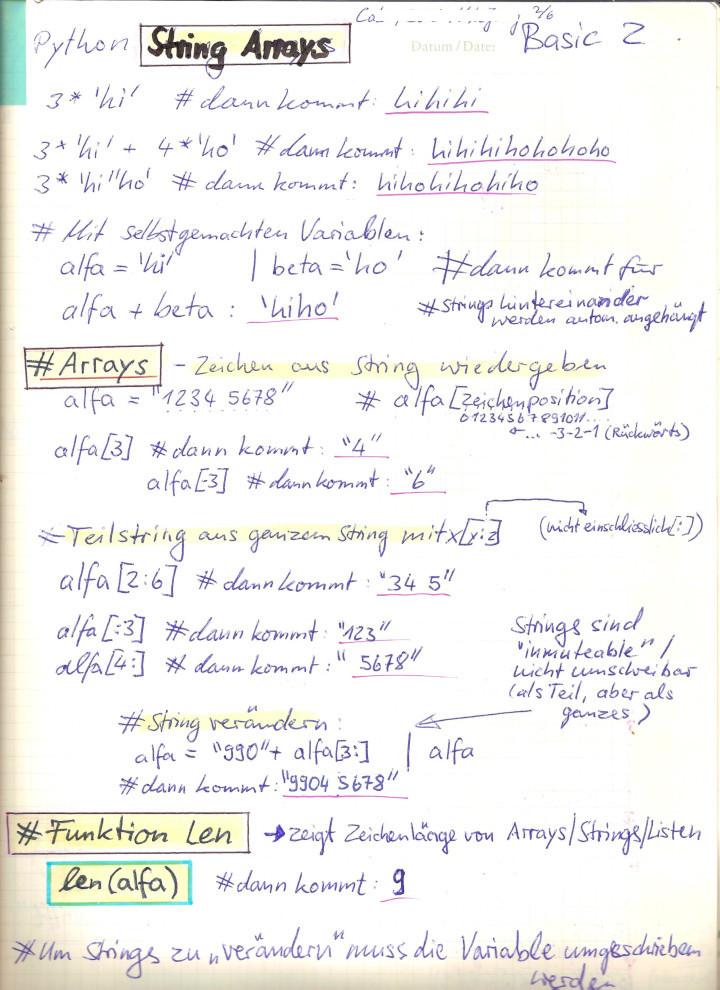 2/6
Python String Arrays Datum / Date: Basic 2
3* 'hi' # dann kommt: hihihi
3* 'hi' + 4*'ho' # dann kommt: hihihihohohoho
3* 'hi''ho' # dann kommt: hihohihohiho
# Mit selbstgemachten Variablen:
alfa = 'hi' | beta = 'ho' # dann kommt für
alfa + beta : 'hiho' # Strings hintereinander
werden autom. angehängt
# Arrays - Zeichen aus String wiedergeben
alfa = "1234 5678" # alfa[Zeichenposition]
01234567891011....
←... -3-2-1 (Rückwärts)
alfa[3] # dann kommt: "4"
alfa[-3] # dann kommt: "6"
# Teilstring aus ganzem String mit x[y:z] (nicht einschliesslich[:])
alfa[2:6] # dann kommt: "34 5"
alfa[:3] # dann kommt: "123"
alfa[4:] # dann kommt: " 5678"
Strings sind
"inmuteable" /
nicht umschreibar
(als Teil, aber als
ganzes)
# String verändern:
alfa = "990" + alfa[3:] | alfa
# dann kommt: "9904 5678"
# Funktion Len → zeigt Zeichenlänge von Arrays/Strings/Listen
len(alfa) # dann kommt: 9
# Um Strings zu „verändern" muss die Variable umgeschrieben
werden